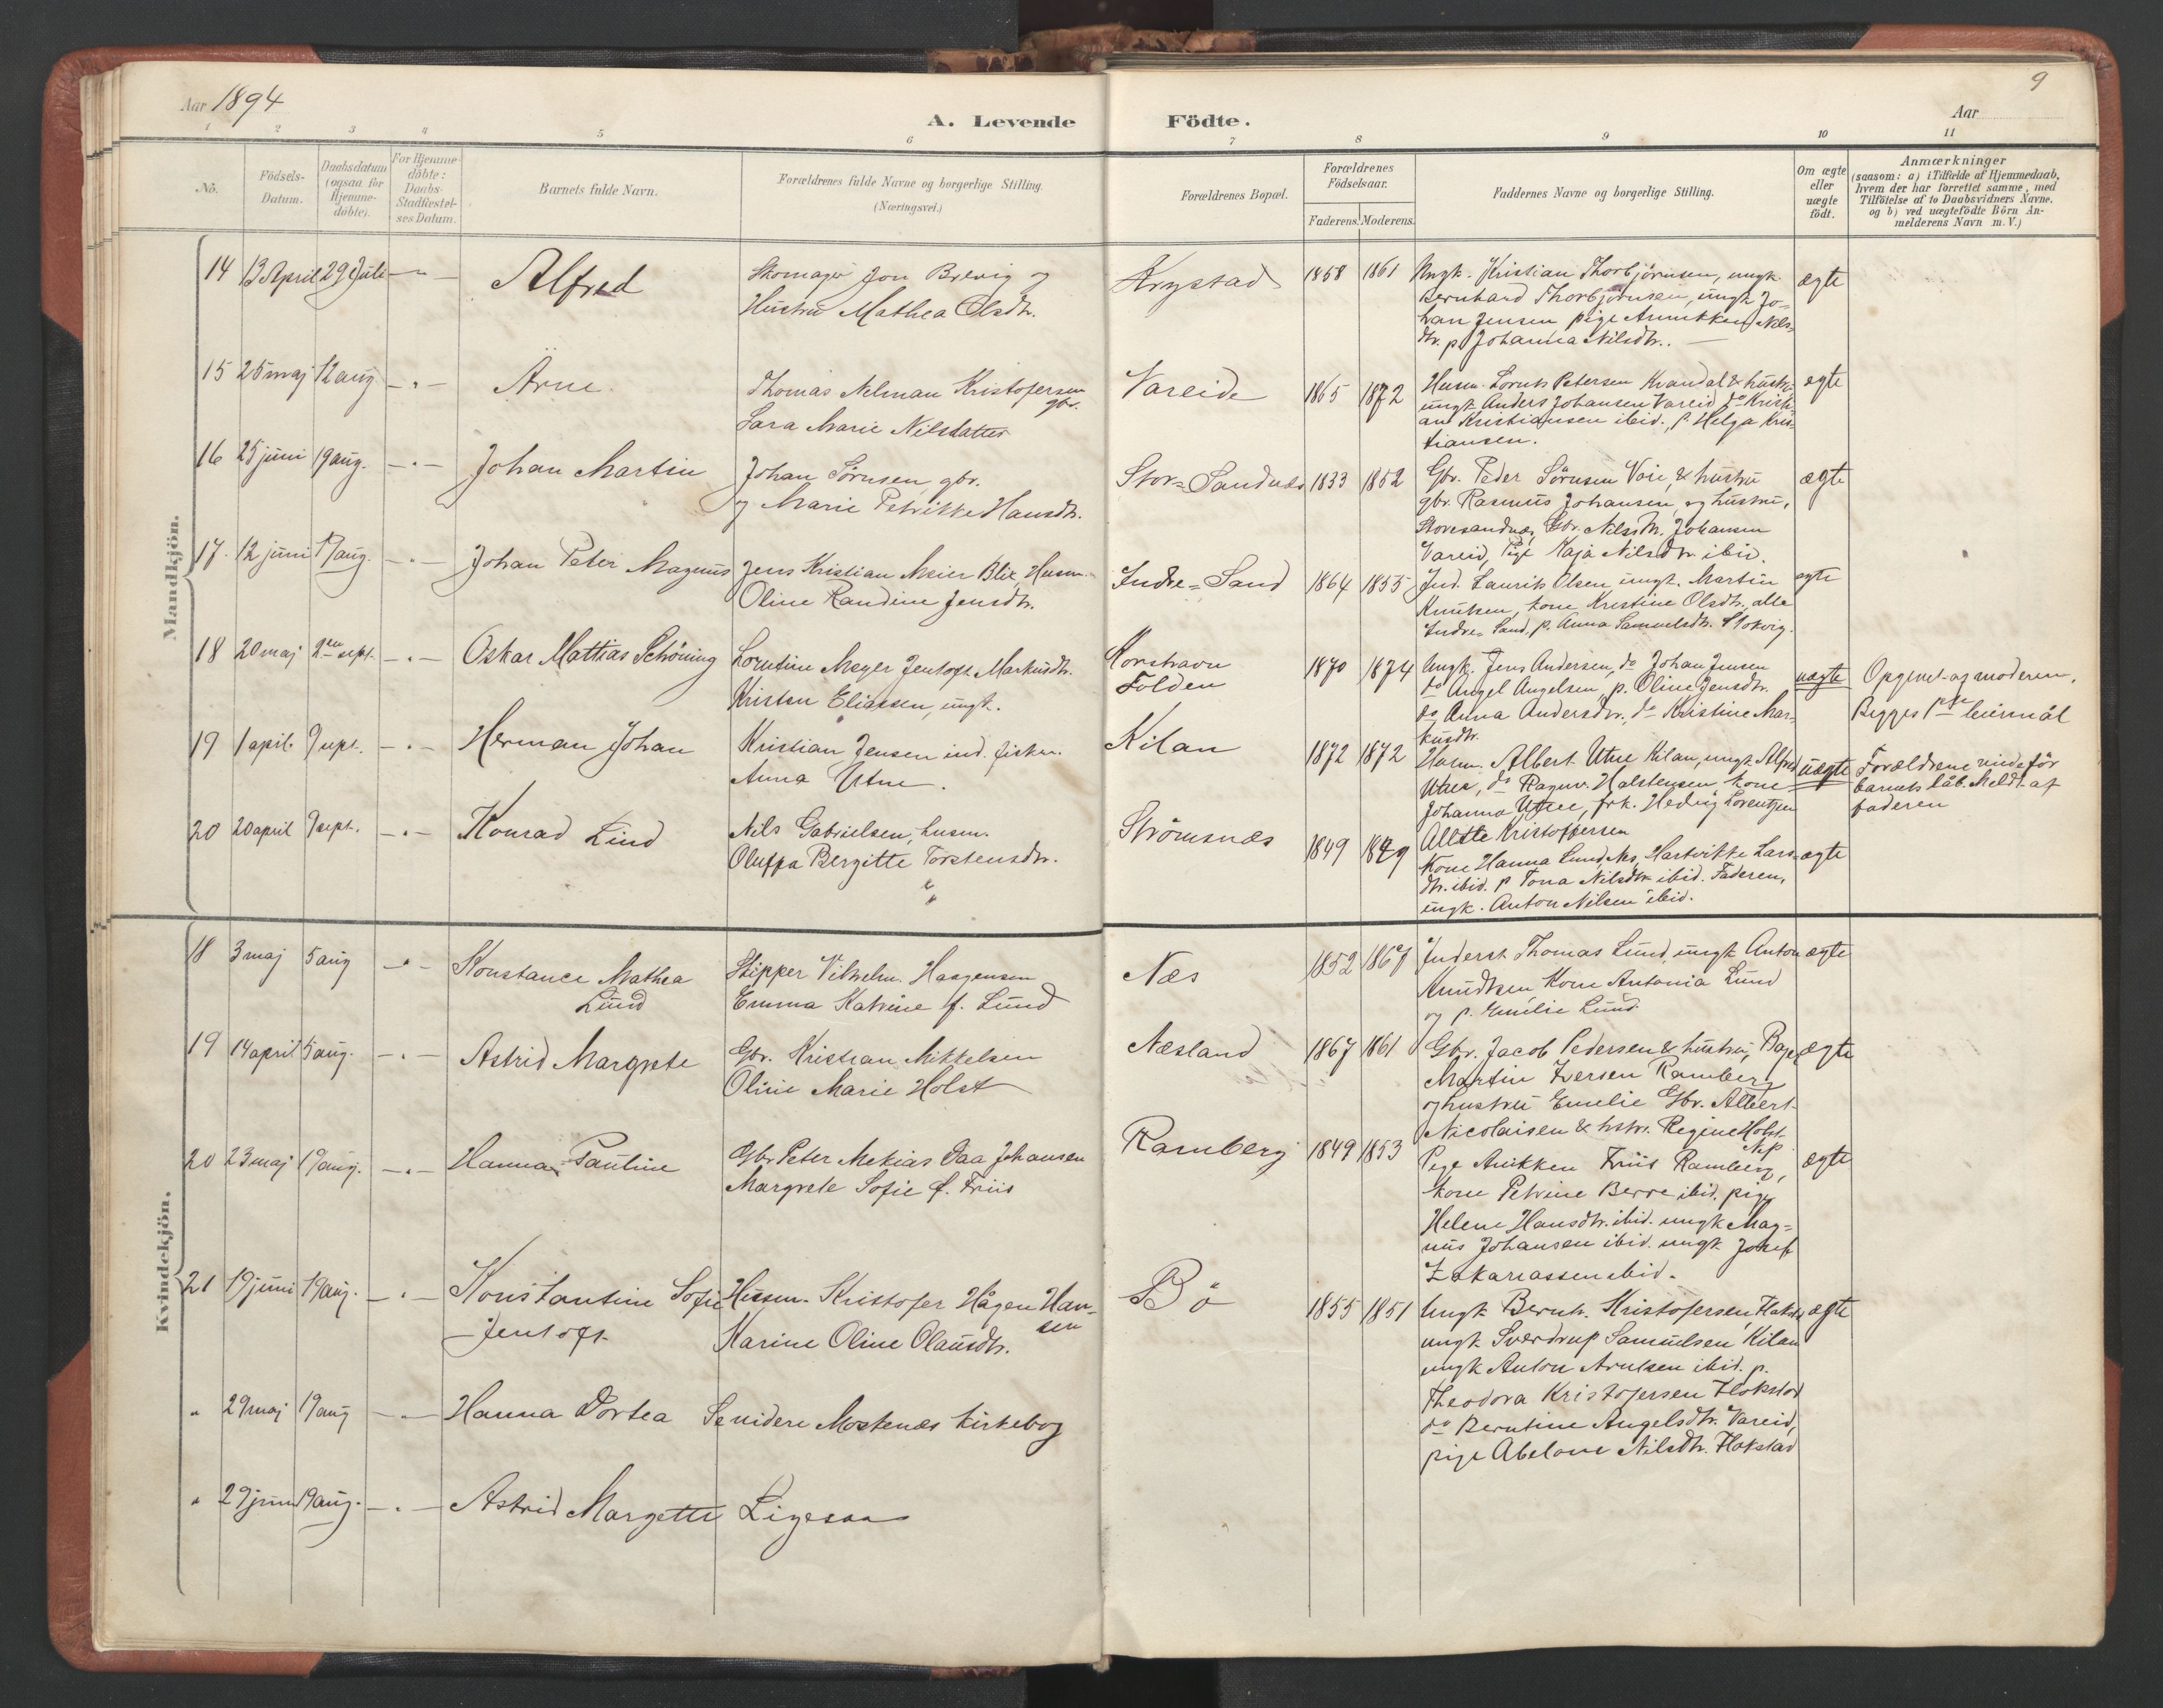 Aar 1894
A. Levende Födte.
9
Aar
1 2 3 4 5 6 7 8 9 10 11
No.
Födsels-
Datum.
Daabsdatum
(ogsaa for
Hjemme-
döbte).
For Hjemme-
döbte:
Daabs-
Stadfæstel-
ses Datum.
Barnets fulde Navn.
Forældrenes fulde Navne og borgerlige Stilling.
(Næringsvei.)
Forældrenes Bopæl.
Forældrenes
Födselsaar.
Faderens. Moderens.
Faddernes Navne og borgerlige Stilling.
Om ægte
eller
uægte
födt.
Anmærkninger
(saasom: a) i Tilfælde af Hjemmedaab,
hvem der har forrettet samme, med
Tilföielse af to Daabsvidners Navne.
og b) ved uægtefödte Börn An-
melderens Navn m. V.)
Mandkjön.
14 13 April 29 Juli - " - Alfred
Skomager Jon Brevig og
Hustru Mathea Olsdtr.
Krystad 1858 1861
Ungk. Kristian Thorbjörnsen, ungk.
Bernhard Thorbjörnsen, ungk. Jo-
han Jensen pige Annikken Nils-
dtr. p. Johanna Nilsdtr. -
ægte
15 25 maj 12 aug. - " - Arne
Thomas Nelman Kristofersen
gbr.
Sara Marie Nilsdatter
Vareide 1865 1872
Husm. Lornts Petersen Kvandal & hustru
ungk. Anders Johansen Vareid, do Kristi-
an Kristiansen ibid., p. Helga Kris-
tiansen.
ægte
16 25 juni 19 aug. - " - Johan Martin
Johan Sörnsen, gbr.
og Marie Petrikke Hansdtr.
Stor=Sandnæs 1833 1852
Gbr. Peder Sörnsen Voie, & hustru
gbr. Rasmus Johansen og hustru,
Storesandnæs, Gbr. Nils M. Johansen
Vareid, Pige Kaja Nilsdtr. ibid.
ægte
17. 12 juni 19 aug. - " - Johan Peter Magnus
Jens Kristian Meier Blix, Husm.
Oline Randine Jensdtr.
Indre=Sand 1864 1855
Ind. Laurits Olsen ungk. Martin
Knutsen, kone Kristine Olsdtr., alle
Indre=Sand, p. Anna Samuelsdtr. Stokvig.
ægte
18 20 maj 2den sept. - " - Oskar Mattias Schöning
Lorntine Meyer Jentoft Markusdtr.
Kristen Eliassen, ungk.
Korshavn
Folden
1870 1874
Ungk. Jens Andersen, do Johan Jensen
do Angel Angelsen, p. Oline Jensdtr.
do Anna Andersdtr. do Kristine Mar-
kusdtr.
uægte
Opgivet af moderen.
Begges 1ste leiermål
19 1 april 9 sept. - " - Herman Johan
Kristian Jensen ind. fisker.
Anna Utne.
Kilan 1872 1872
Husm. Albert Utne Kilan, ungk. Alfred
Utne, do Ragnv. Halstensen, kone
Johanna Utne, frk. Hedvig Lorentzen
uægte
Forældrene viede för
barnets dåb. Meldt af
faderen
20 20 april 9 sept. - " - Konrad Lind
Nils Gabrielsen, husm.
Oluffa Bergitte Torstensdtr.
Strömsnæs 1849 1849
Kristoffersen
Kone Hanna Lund, Næs, Hartvikke Lars-
dtr. ibid. p Tona Nilsdtr. ibid. Faderen,
ungk. Anton Nilsen ibid.
ægte
Kvindekjön.
18 3 maj 5 aug - " - Konstance Mathea
Lund
Skipper Vilhelm Haagensen
Emma Katrine f. Lund
Næs 1852 1867
Inderst Thomas Lund, ungk. Anton
Knudtsen Kone Antonia Lund
og p. Emilie Lund.
ægte
19 14 april 5 aug. - " - Astrid Margrete
Gbr. Kristian Mikkelsen
Oline Marie Holst
Næsland 1867 1861
Gbr. Jacob Pedersen & hustru,
Martin Iversen Ramberg
og hustru Emelie Gbr. Albert
Nicolaisen & hstr. Regine Holst
ægte
20 23 maj 19 aug. - " - Hanna Pauline
Gbr. Peter Mekias Daa Johansen
Margrete Sofie f. Friis
Ramberg 1849 1853
Pige Anikken Friis Ramberg,
kone Petrine Berre ibid. pige
Helene Hansdtr. ibid. ungk Mag-
nus Johansen ibid. ungk. Josef
Zakariassen ibid.
ægte
21 19 juni 19 aug. - " - Konstantine Sofie
Jentoft
Husm. Kristofer Hågen Han-
sen
Karine Oline Olausdtr.
Bö 1855 1851
Ungk. Bernh. Kristofersen, Flakstd
ungk. Sverdrup Samuelsen, Kilan
ungk Anton Arntsen ibid. p.
Theodora Kristofersen Flakstad
do Berntine Angelsdtr. Vareid,
pige Abelone Nilsdtr. Flakstad
ægte
" 29 maj 19 aug - " - Hanna Dortea Se videre Moskenæs kirkebog
" 29 juni 19 aug. - " - Astrid Margette Ligesaa